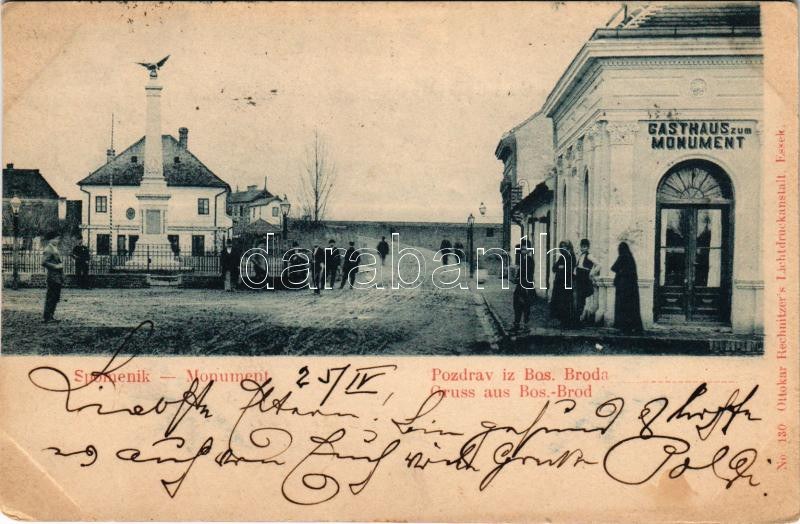 GASTHAUS zum
MONUMENT
darabanth
Spomenik — Monument
Pozdrav iz Bos. Broda
Gruss aus Bos.-Brod
25/IV
Liebste Eltern! Bin gesund & hoffe
es auch von Euch viele Grüße Poldi
No. 130 Ottokar Rechnitzer's Lichtdruckanstalt, Essek.